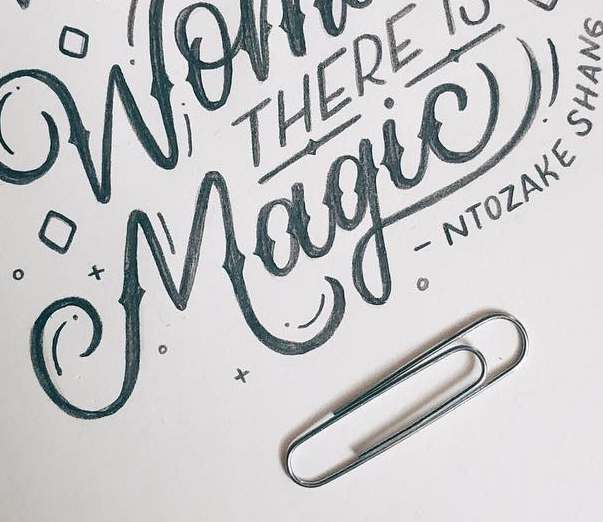 Wom
THERE IS
Magic
- NTOZAKE SHANG